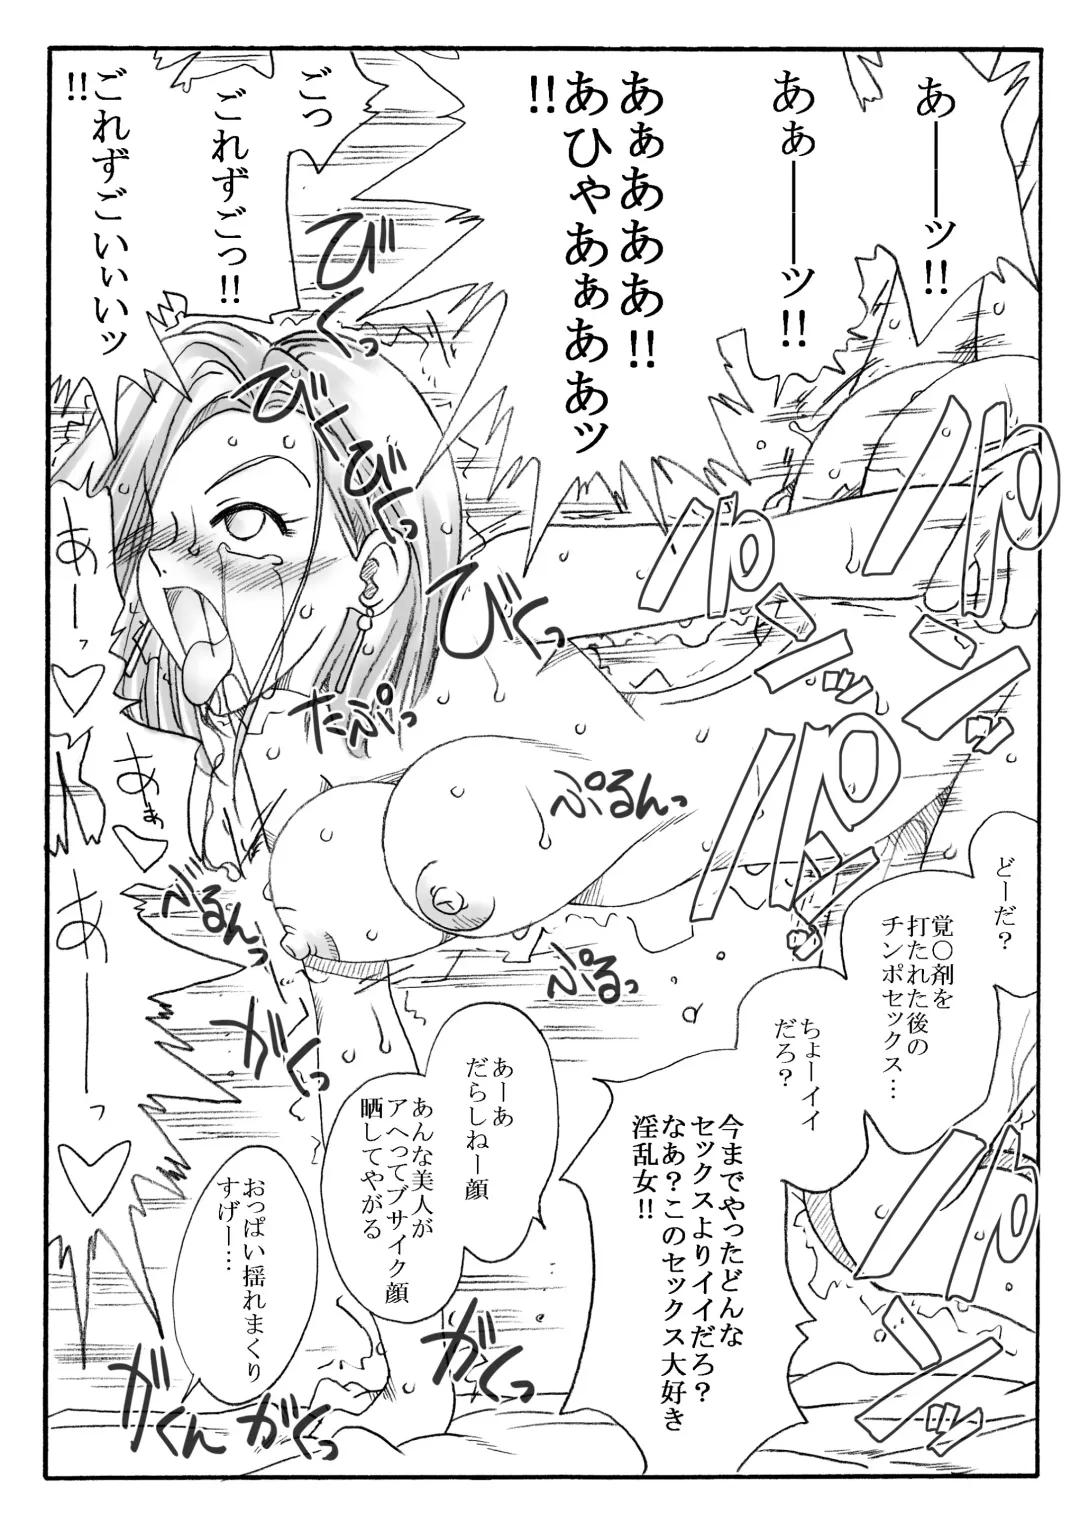 あ――ッ!!
あぁ――ッ!!
あぁあああ!!
あひゃあぁああッ
!!
ごっ
ごれずごっ!!
ごれずごいぃいッ
!!
びくっ
びくびくっ
びくっ
パン
パン
パンッ
パンッ
パンッ
たぷっ
ぷるんっ
ぷるんっ
ぷるっ
あーっ
あぁぁ
あ――っ
どーだ?
覚〇剤を
打たれた後の
チンポセックス…
ちょーイイ
だろ?
今までやったどんな
セックスよりイイだろ?
なあ?このセックス大好き
淫乱女!!
あーあ
だらしねー顔
あんな美人が
アヘってブサイク顔
晒してやがる
おっぱい揺れまくり
すげー…
がくっ
がくっ
がくん
がくっ